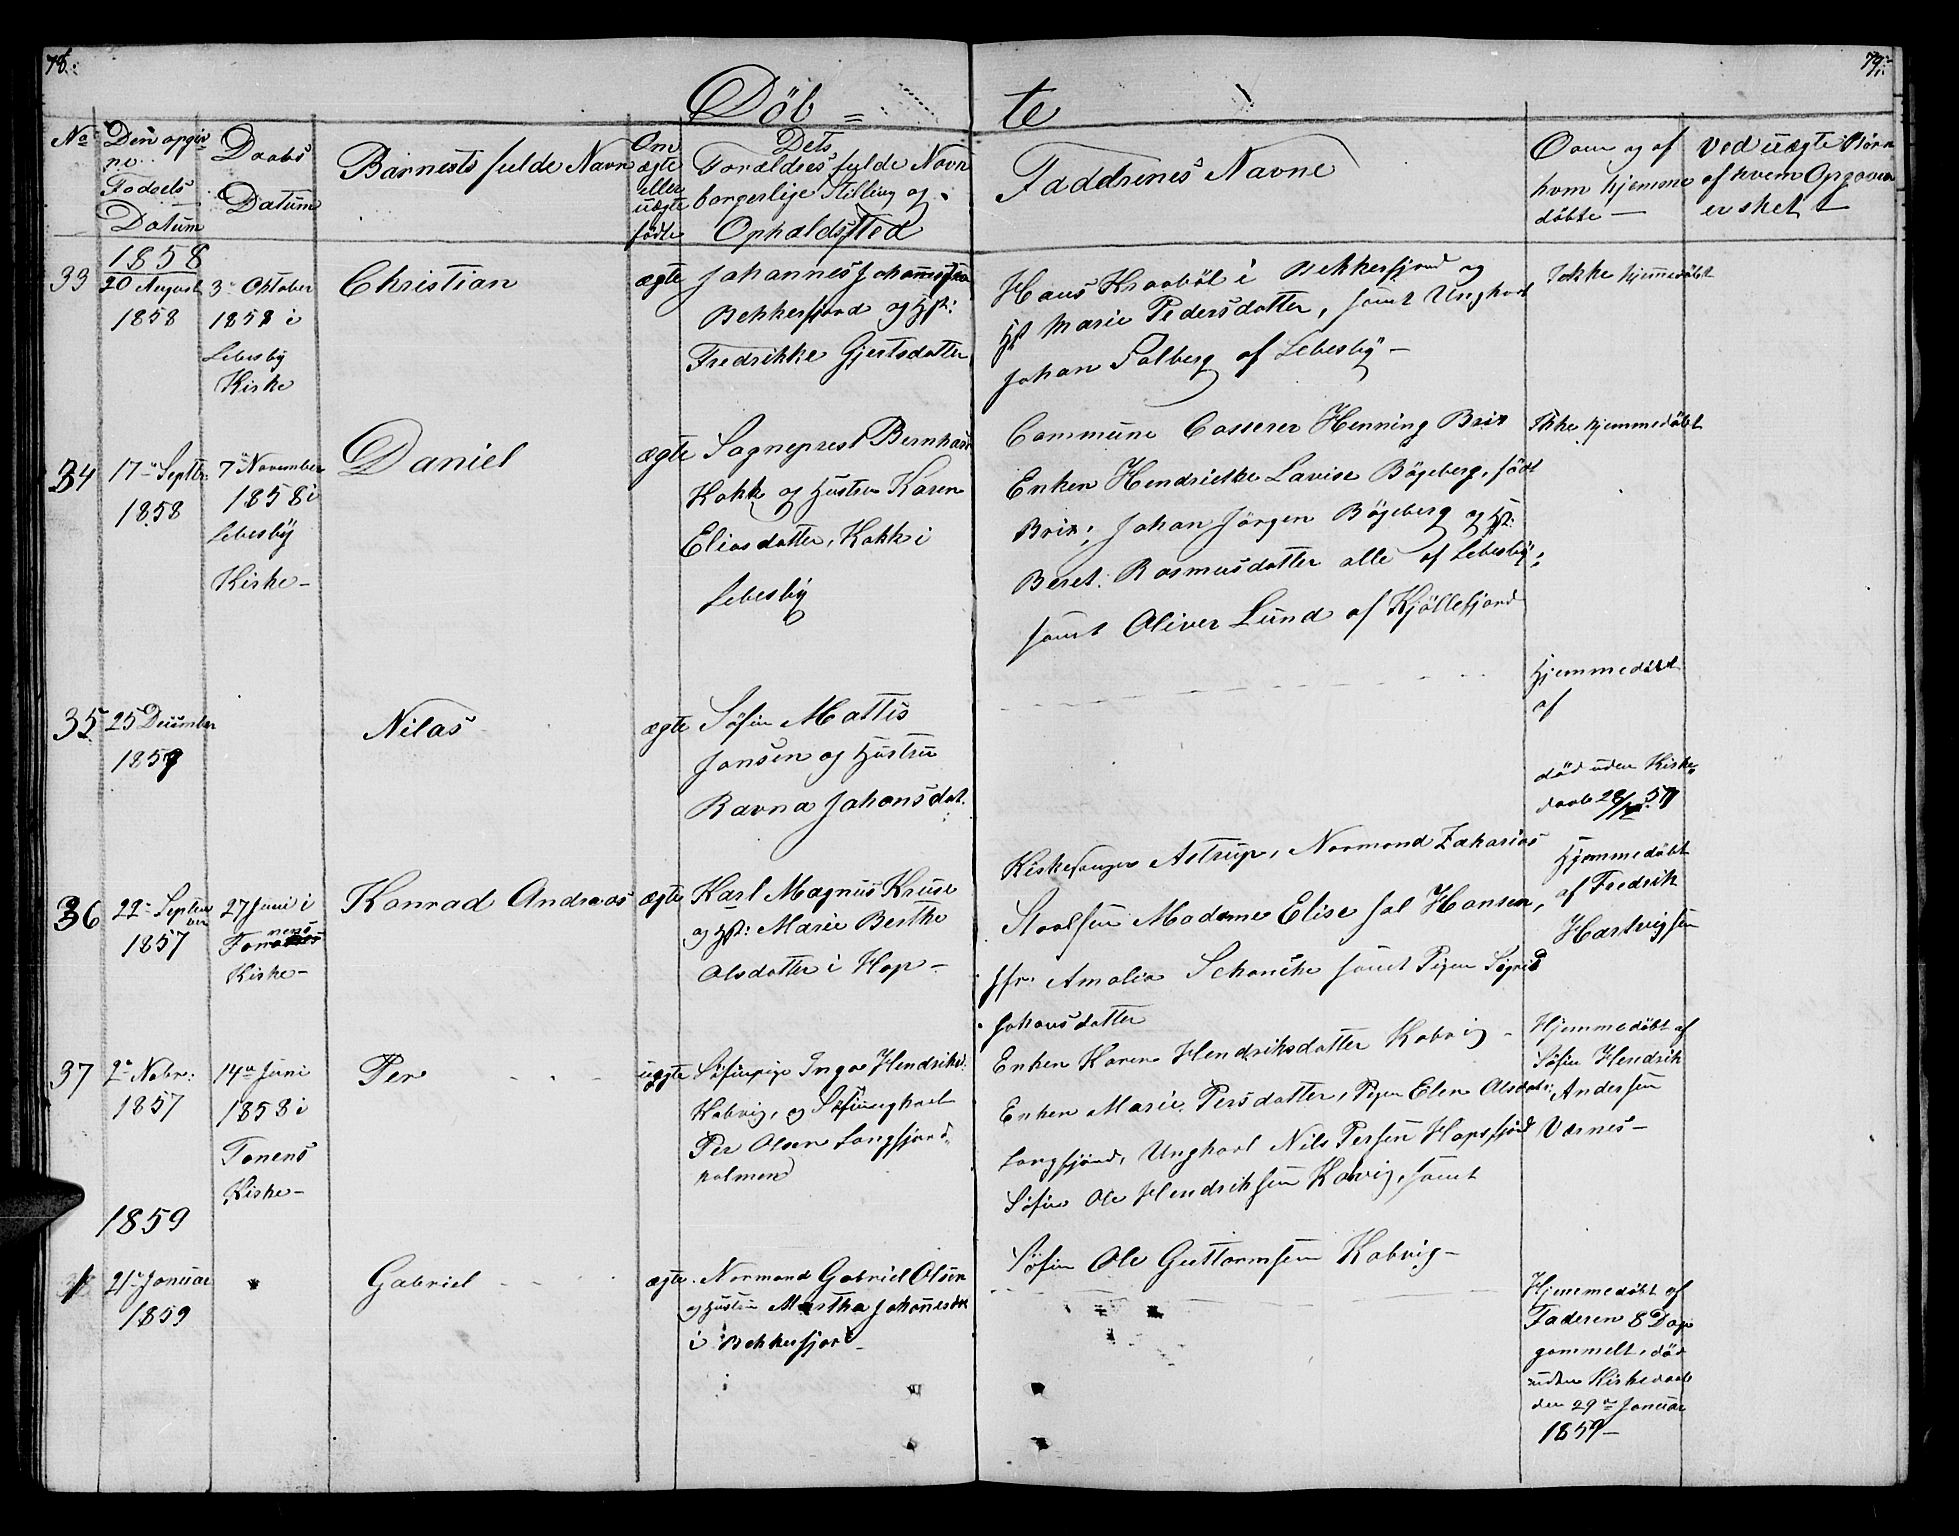 78.
79.
Döb=
te
No
Den opgiv
ne
Födsels
Datum
Daabs
Datum
Barnests fulde Navn
Om
ægte
eller
uægte
födte
Dets
Forældres fulde Navn
borgerlige Stilling og
Opholdsted
Faddrenes Navne
Om og af
hvem hjemme
döbte —
Ved uægte Börn
af hvem Opgaven
er sket —
1858
33
20 August
1858
3 Oktober
1858 i
Lebesby
Kirke
Christian
ægte
Johannes
Bekkerfjord og Hst:
Fredrikke Gjertsdatter
Hans Kraaböl i Bekkerfjord og
Hst Marie Pedersdatter, samt Ungkarl
Johan Salberg af Lebesby —
Ikke hjemmedöbt
34
17 Septbr:
1858
7 November
1858 i
Lebesby
Kirke —
Daniel
ægte
Sogneprest Bernhard
Kokk og Hustru Karen
Eliasdatter, Kokk i
Lebesby
Commune Casserer Henning Brix
Enken Hendrikke Lavise Bögeberg, födt
Brix; Johan Jörgen Bögeberg og Hst:
Beret Rasmusdatter alle af Lebesby;
samt Oliver Lund af Kjöllefjord
Ikke hjemmedöbt
35
25 December
1857
Nilas
ægte
Söfin Mattis
Jansen og Hustru
Ravna Johansdat.
Hjemmedöbt
af
död uden Kirke
daab 28/12 57
36
22 Septem
ber
1857
27 Juni i
Kirke —
Konrad Andreas
ægte
Karl Magnus Kruse
og Hst: Marie Berthe
Olsdatter i Hop —
Kirkesanger Astrup, Normand Zakarias
Madame Elise sal Hansen,
Jfr. Amalia Schanche samt Pigen Sigrid
Johansdatter
Hjemmedöbt
af Fredrik
Hartvigsen
37
2 Nobr:
1857
14 Juni
1858 i
Tanens
Kirke —
Per
uægte
Söfinpige Inga Hendriksd.
Kabvig, og Söfinungkarl
Per Olsen Langfjord
holmen
Enken Karen Hendriksdatter Kabvig —
Enken Marie Persdatter, Pigen Elen Olsdatr:
Langfjord, Ungkarl Nils Persen Hopsfjord
Söfin Ole Hendriksen Kavig, samt
Söfin Ole Guttormsen Kabvig —
Hjemmedöbt af
Söfin Hendrik
Andersen
Værnes —
1859
1
21 Januar
1859
Gabriel
ægte
Normand Gabriel Olsen
og Hustru Martha Johannesdat
i Bekkerfjord —
Hjemmedöbt af
Faderen 8 Dage
gammelt, död
uden Kirkedaab
den 29 Januar
1859 —